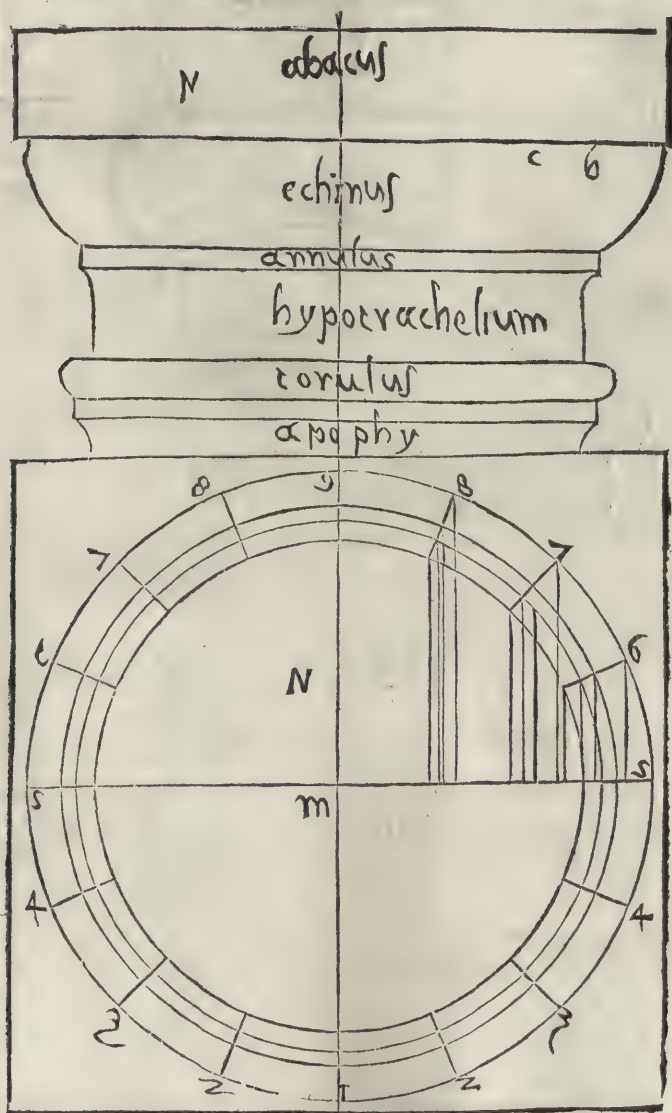 abacus
N
c b
echinus
annulus
hypotrachelium
torulus
apophy
8 9 8
7 7
6 6
N
5 5
m
4 4
3 3
2 1 2